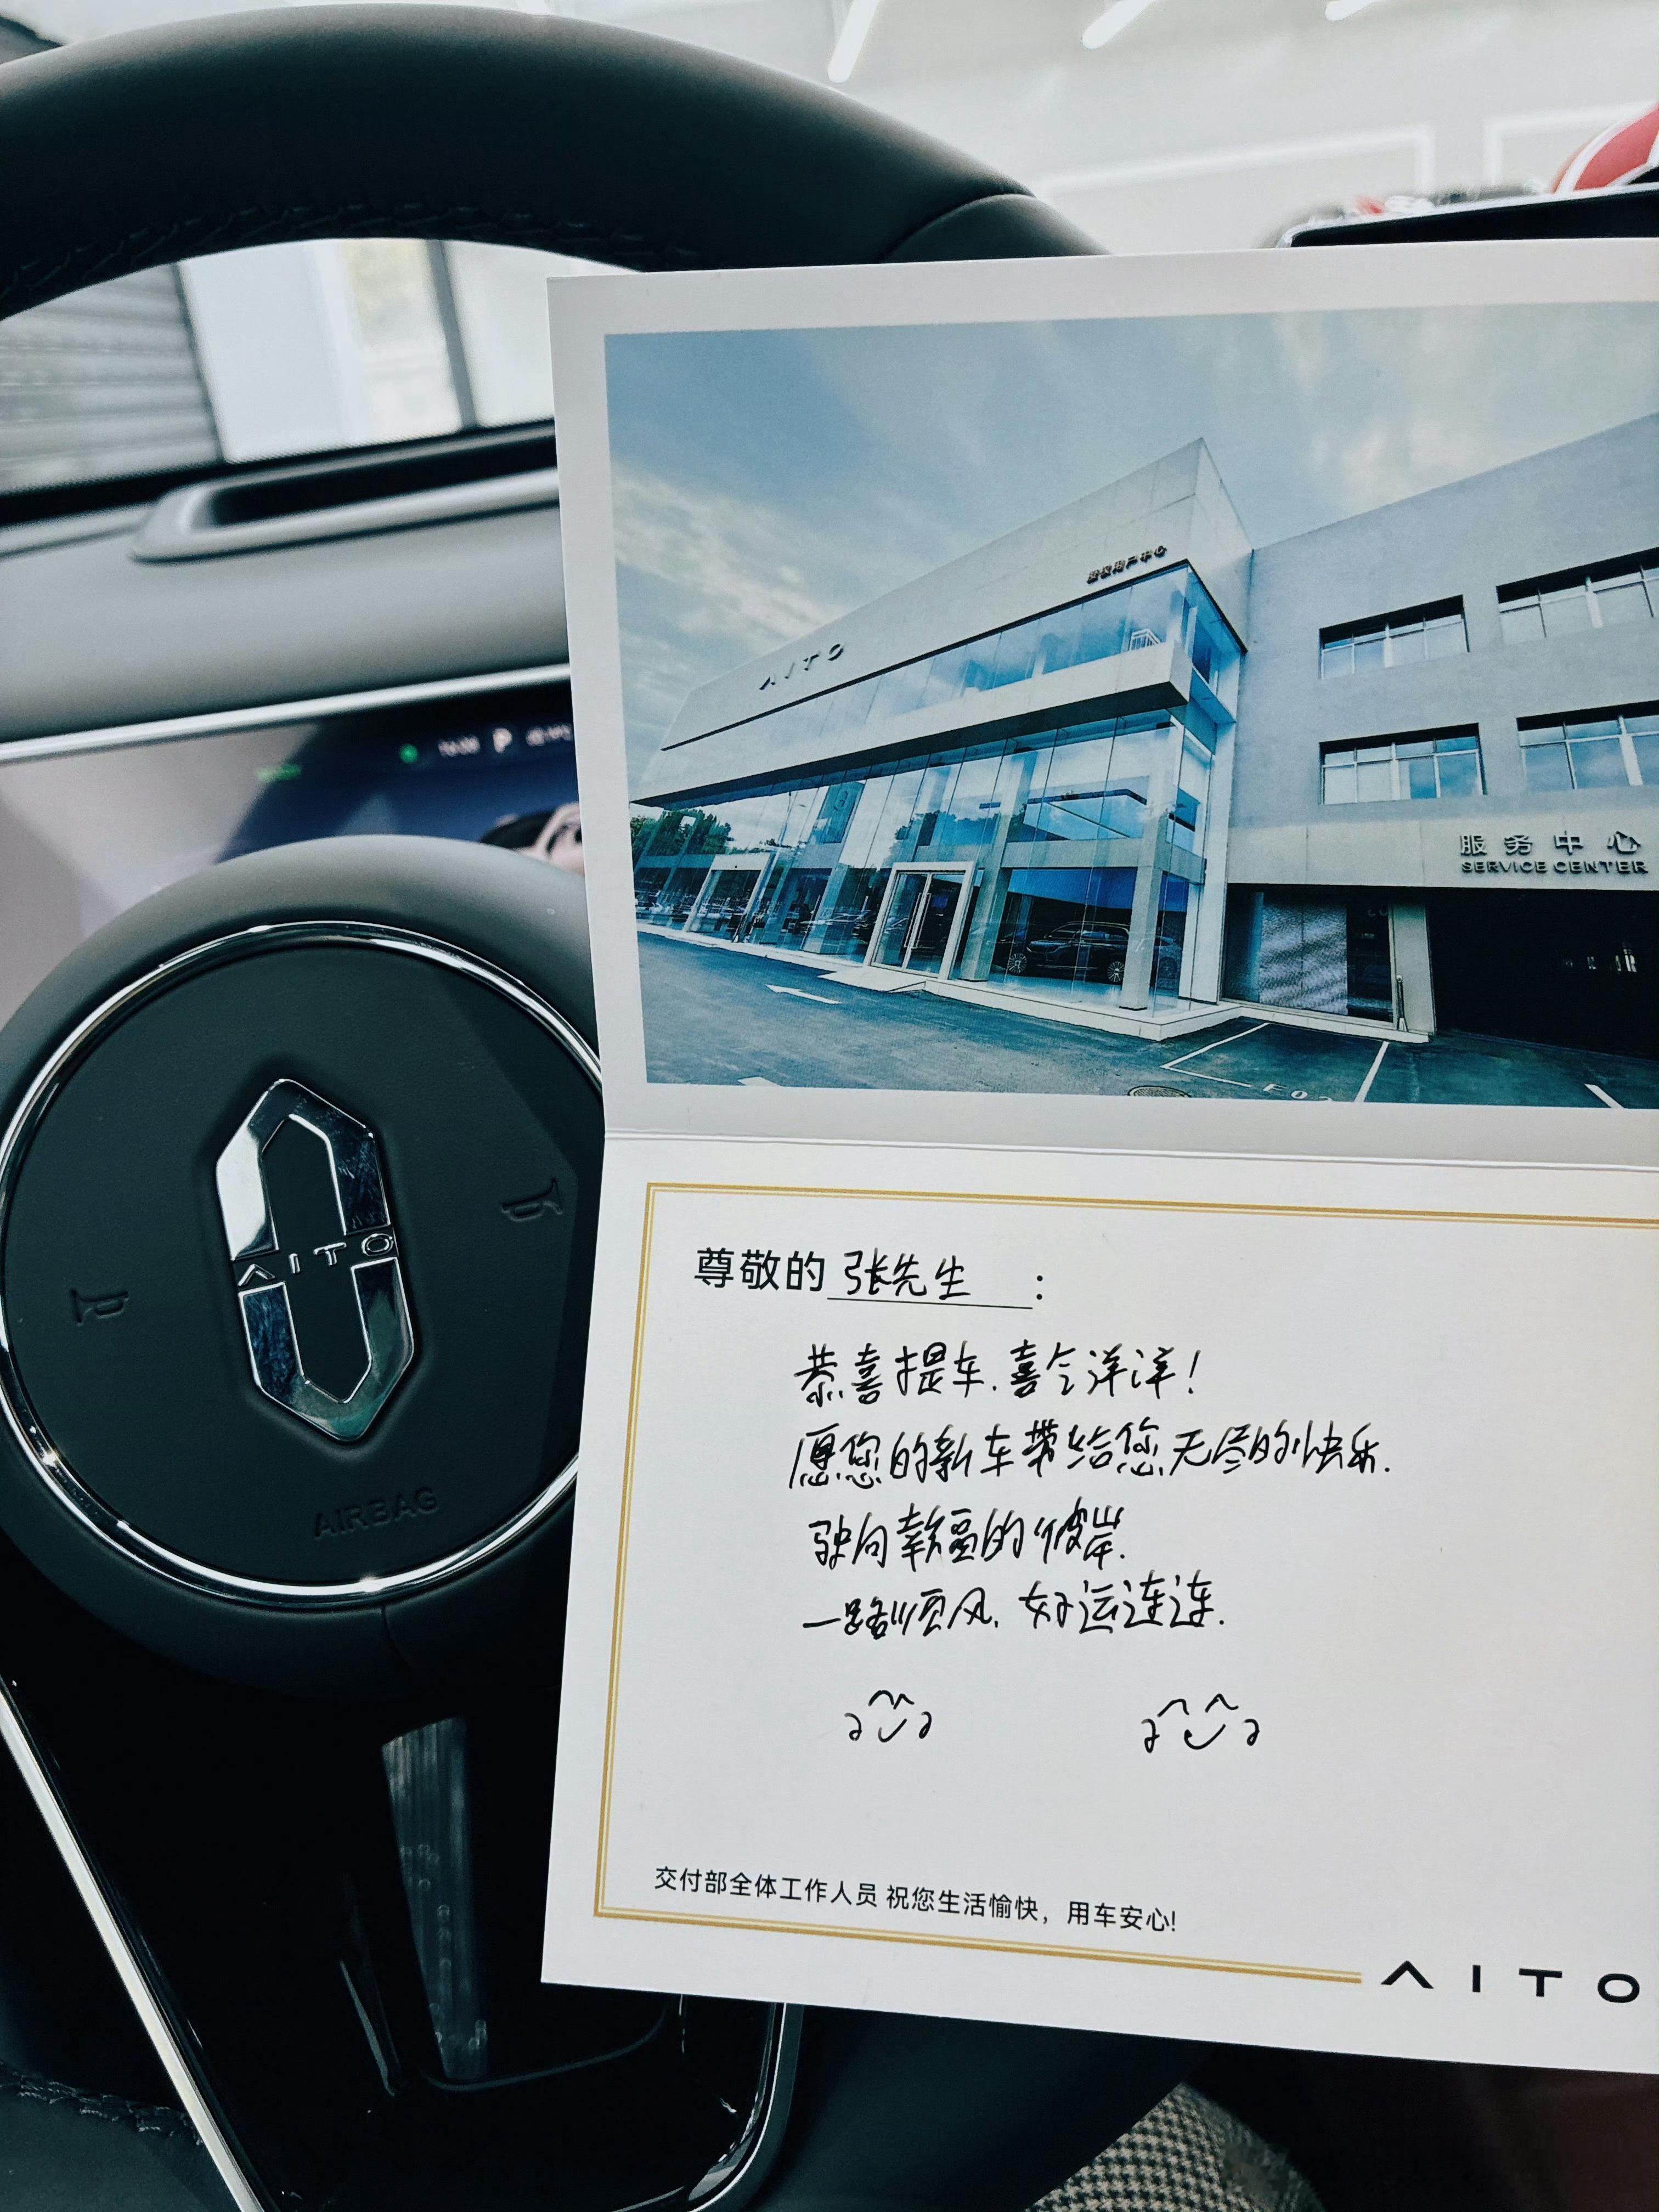 授权用户中心
AITO
服务中心
SERVICE CENTER
P
AITO
AIRBAG
尊敬的 张先生 :
恭喜提车.喜气洋洋!
愿您的新车带给您无尽的快乐.
驶向幸福的彼岸.
一路顺风.好运连连.
交付部全体工作人员 祝您生活愉快，用车安心!
AITO